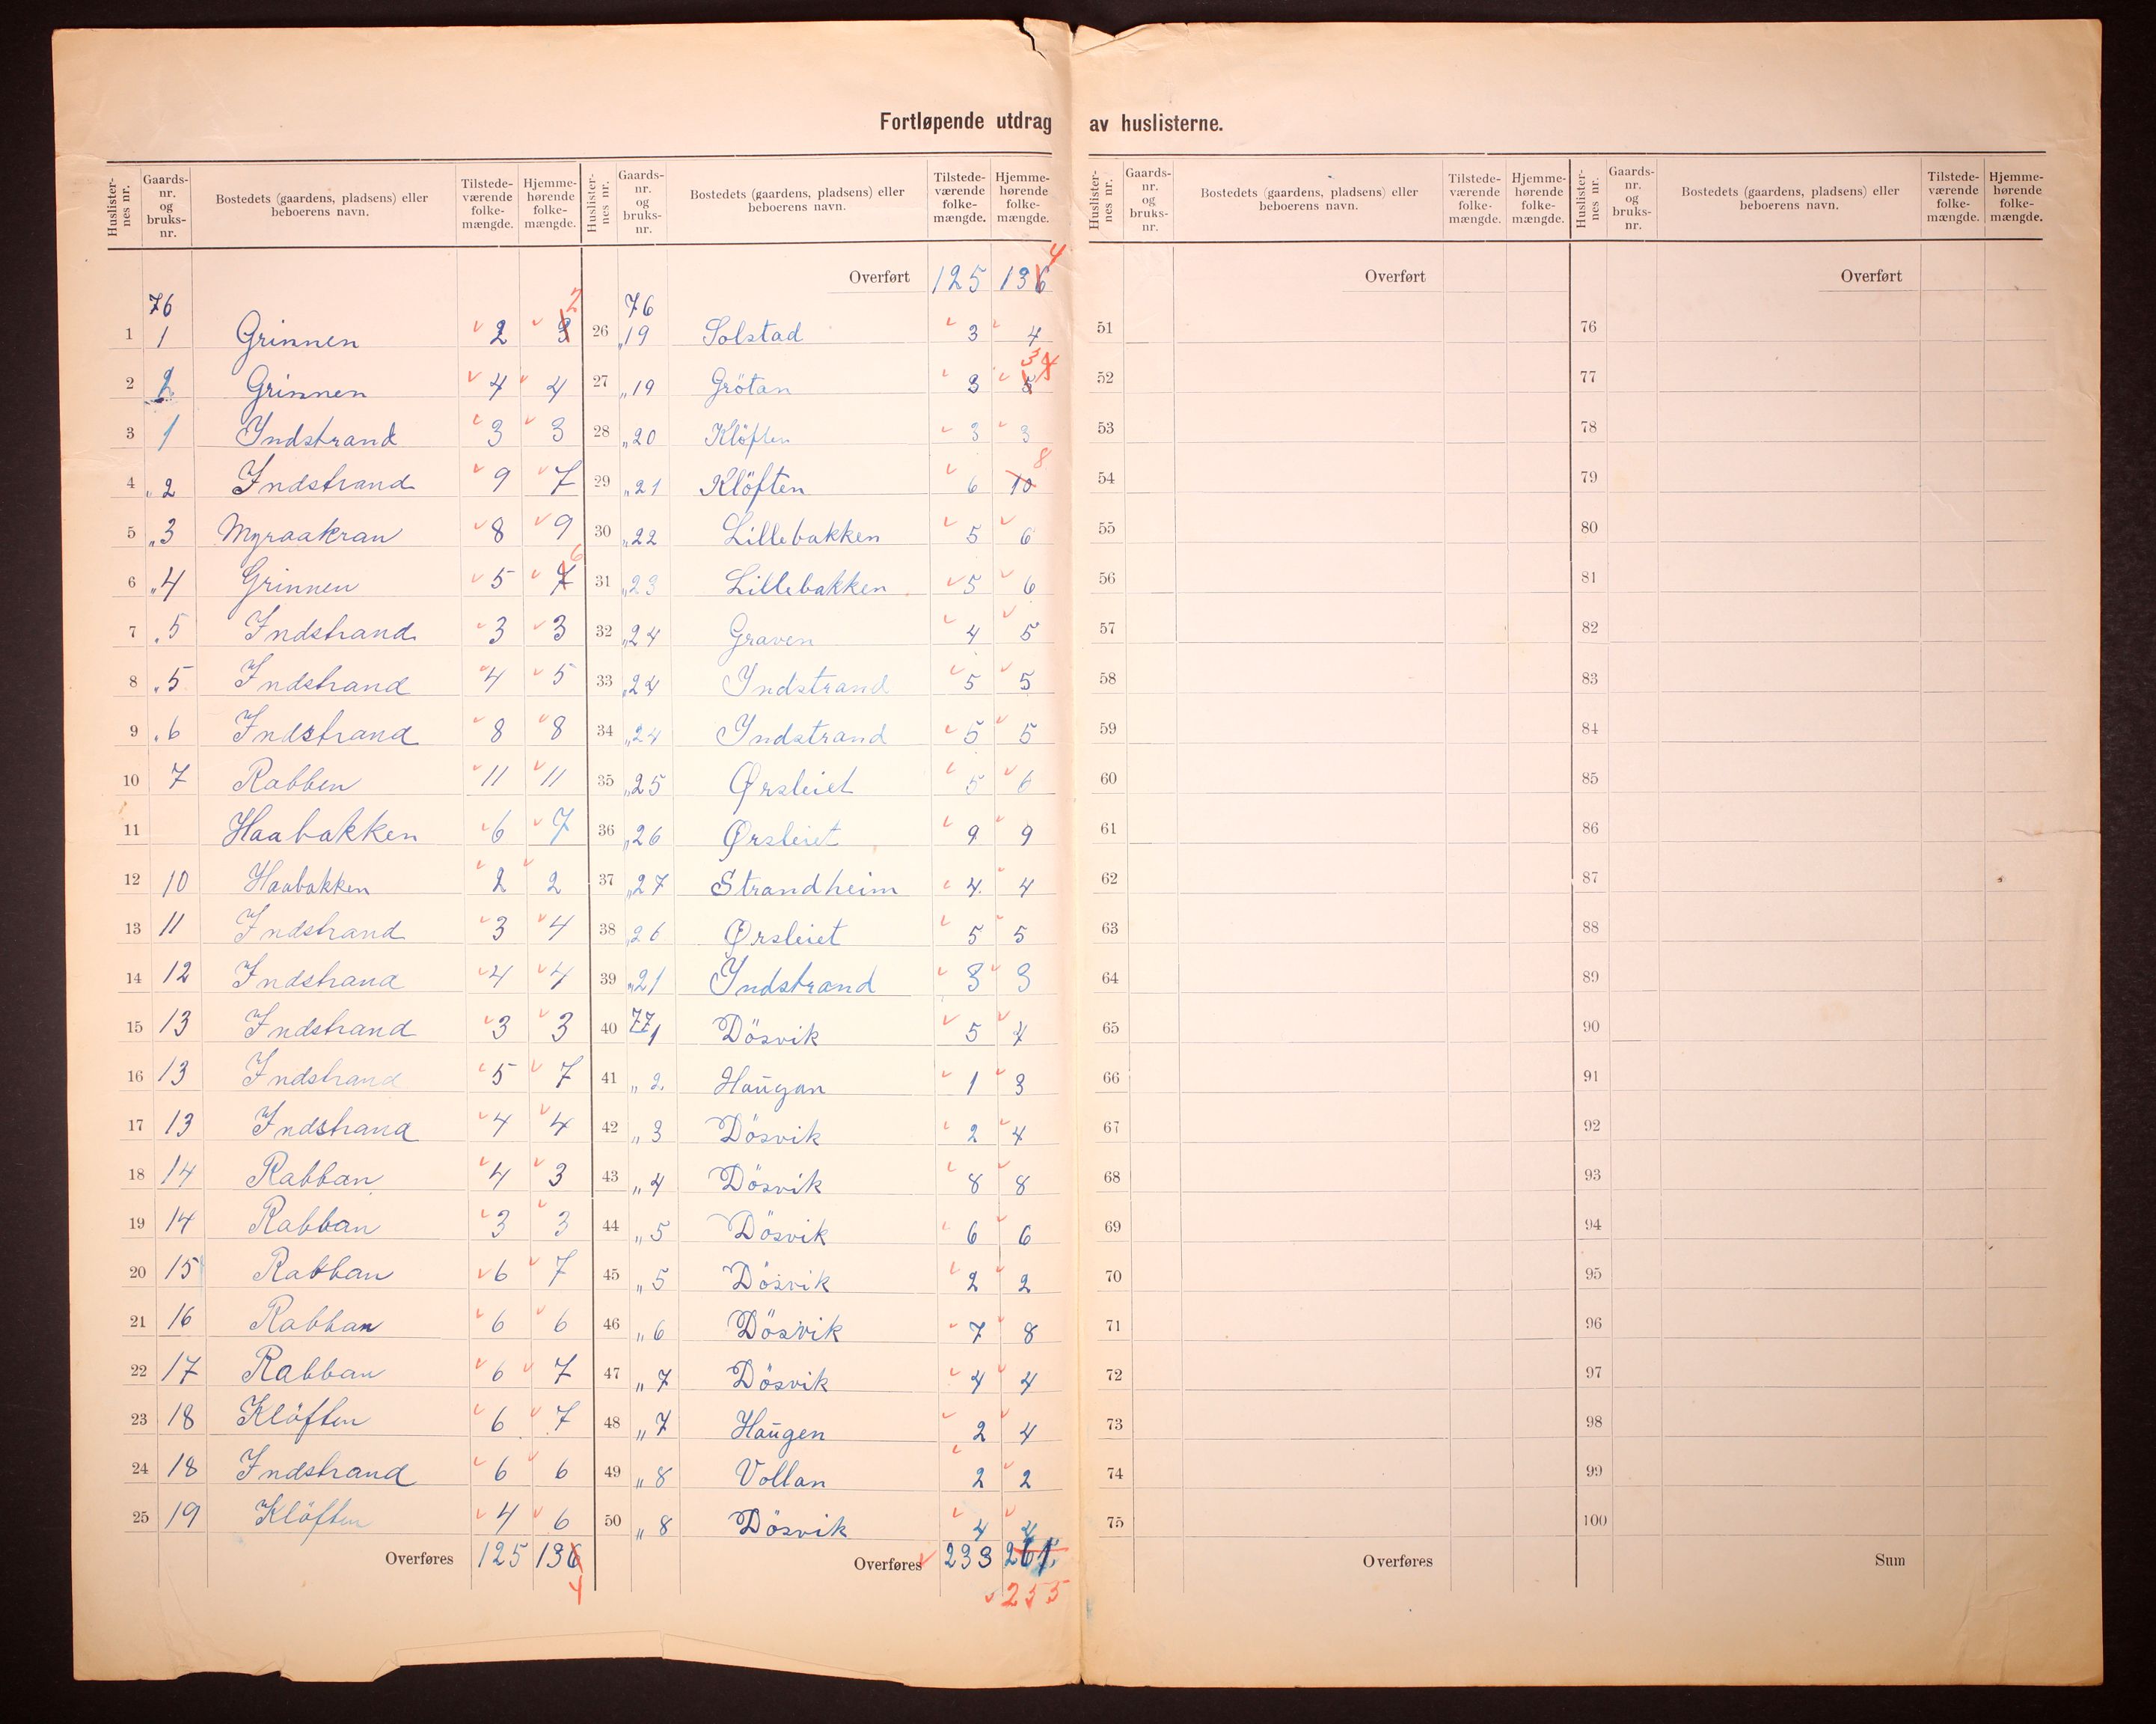 Fortløpende utdrag av huslisterne.
Huslister-nes nr. Gaards-nr. og bruks-nr. Bostedets (gaardens, pladsens) eller beboerens navn. Tilstede-værende folke-mængde. Hjemme-hørende folke-mængde.
76
1 1 Grinnen 2 3 2
2 2 Grinnen 4 4
3 1 Indstrand 3 3
4 „ 2 Indstrand 9 7
5 „ 3 Myraakran 8 9
6 „ 4 Grinnen 5 7 6
7 „ 5 Indstrand 3 3
8 „ 5 Indstrand 4 5
9 „ 6 Indstrand 8 8
10 7 Rabben 11 11
11 Haabakken 6 7
12 10 Haabakken 2 2
13 11 Indstrand 3 4
14 12 Indstrand 4 4
15 13 Indstrand 3 3
16 13 Indstrand 5 7
17 13 Indstrand 4 4
18 14 Rabban 4 3
19 14 Rabban 3 3
20 15 Rabban 6 7
21 16 Rabban 6 6
22 17 Rabban 6 7
23 18 Klöften 6 7
24 18 Indstrand 6 6
25 19 Klöften 4 6
Overføres 125 136 4
Huslister-nes nr. Gaards-nr. og bruks-nr. Bostedets (gaardens, pladsens) eller beboerens navn. Tilstede-værende folke-mængde. Hjemme-hørende folke-mængde.
Overført 125 136 4
76
26 „ 19 Solstad 3 4
27 „ 19 Grötan 3 5 4 3
28 „ 20 Klöften 3 3
29 „ 21 Klöften 6 10 8
30 „ 22 Lillebakken 5 6
31 „ 23 Lillebakken 5 6
32 „ 24 Graven 4 5
33 „ 24 Indstrand 5 5
34 „ 24 Indstrand 5 5
35 „ 25 Ørsleiet 5 6
36 „ 26 Ørsleiet 9 9
37 „ 27 Strandheim 4 4
38 „ 26 Ørsleiet 5 5
39 „ 21 Indstrand 3 3
40 77 1 Dösvik 5 4
41 „ 2 Haŭgan 1 3
42 „ 3 Dösvik 2 4
43 „ 4 Dösvik 8 8
44 „ 5 Dösvik 6 6
45 „ 5 Dösvik 2 2
46 „ 6 Dösvik 7 8
47 „ 7 Dösvik 4 4
48 „ 7 Haŭgen 2 4
49 „ 8 Vollan 2 2
50 „ 8 Dösvik 4 4
Overføres 233 261
255
Huslister-nes nr. Gaards-nr. og bruks-nr. Bostedets (gaardens, pladsens) eller beboerens navn. Tilstede-værende folke-mængde. Hjemme-hørende folke-mængde.
Overført
51
52
53
54
55
56
57
58
59
60
61
62
63
64
65
66
67
68
69
70
71
72
73
74
75
Overføres
Huslister-nes nr. Gaards-nr. og bruks-nr. Bostedets (gaardens, pladsens) eller beboerens navn. Tilstede-værende folke-mængde. Hjemme-hørende folke-mængde.
Overført
76
77
78
79
80
81
82
83
84
85
86
87
88
89
90
91
92
93
94
95
96
97
98
99
100
Sum